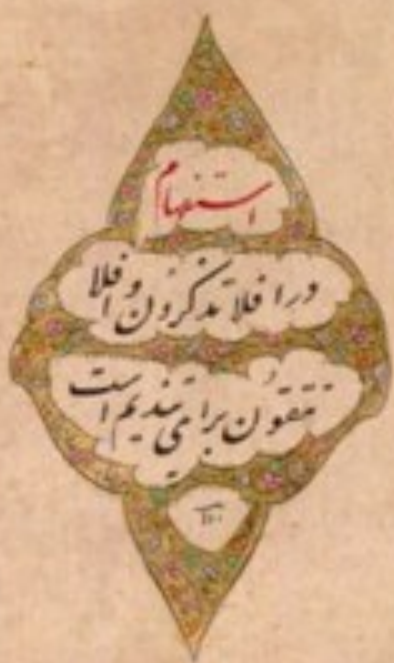 استفهام
در افلا تذکرون و افلا
تتقون برای تندیم است